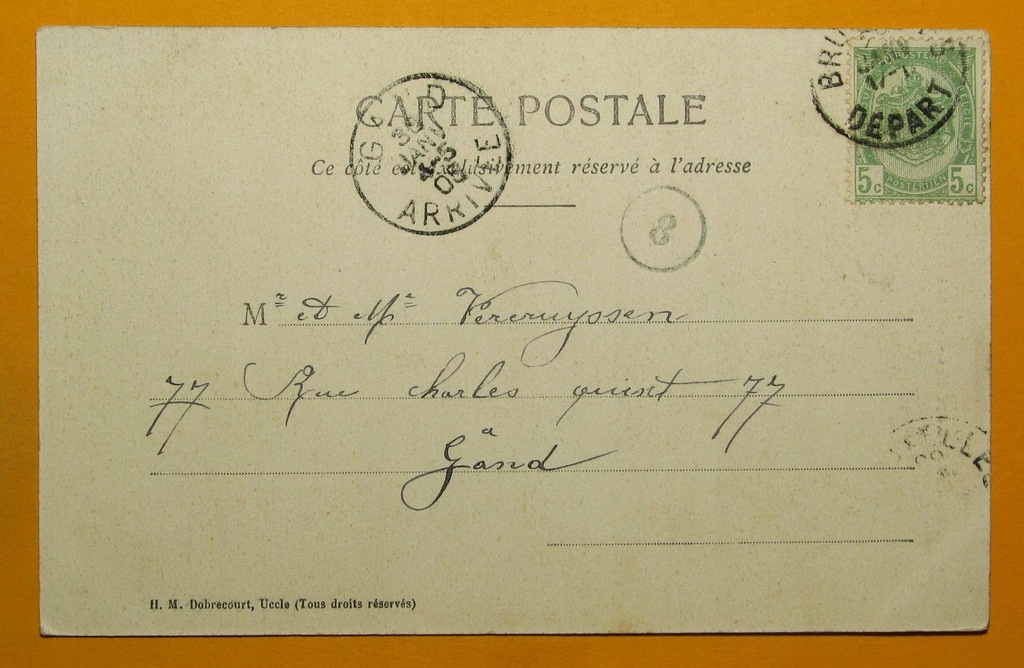 CARTE POSTALE
Ce côté est exclusivement réservé à l'adresse
GAND
30
JANV
1905
ARRIVÉE
DEPART
POSTERIJEN
5c 5c
8
Mr et Me Vercruyssen
77 Rue charles quint 77
a
Gand
H. M. Dobrecourt, Uccle (Tous droits réservés)